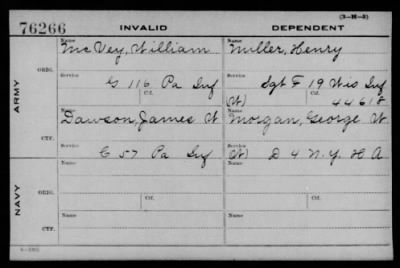 (3-H-3)
76266 INVALID DEPENDENT
ARMY
ORIG.
Name Name
McVey, William Miller, Henry
Service Service
G 116 Pa Inf Sgt F 19 Wis Inf
Ctf. (W) Ctf. 44618
CTF.
Name Name
Dawson, James W Morgan, George W
Service Service
C 57 Pa Inf (W) D 4 N.Y. H A
NAVY
ORIG.
Ctf. Ctf.
Name Name
Service Service
CTF.
Ctf. Ctf.
Name Name